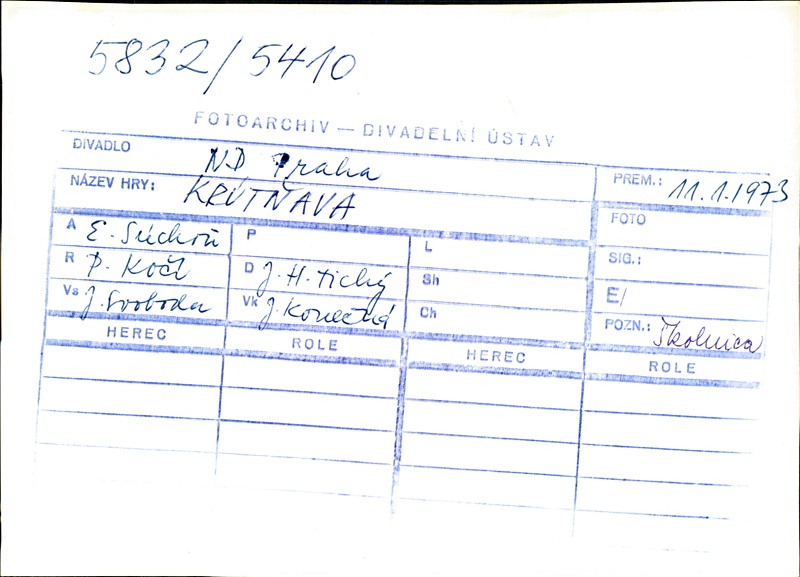 5832/5410
FOTOARCHIV — DIVADELNÍ ÚSTAV
DIVADLO ND Praha
PREM.: 11.1.1973
NÁZEV HRY: KRÚTŇAVA
FOTO
A E. Suchoň P L
SIG.:
R P. Kočí D J. H. Tichý Sh
E/
Vs J. Svoboda Vk J. Konečná Ch
POZN.: Školnica
HEREC ROLE HEREC ROLE